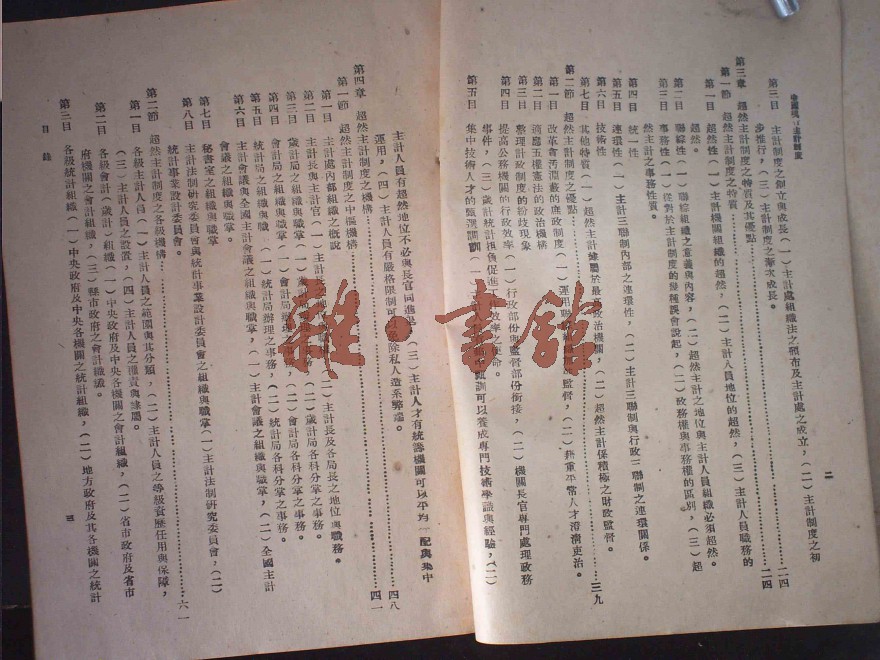 二
第三目 主計制度之創立與成長（一）主計處組織法之頒布及主計處之成立，（二）主計制度之初
步推行，（三）主計制度之漸次成長。
第三章 超然主計制度之特質及其優點 二四
第一節 超然主計制度之特質 二四
第一目 超然性（一）主計機關組織的超然，（二）主計人員地位的超然，（三）主計人員職務的
超然。
第二目 聯綜性（一）聯綜組織之意義與內容，（二）超然主計之地位與主計人員組織必須超然。
第三目 事務性（一）從對於主計制度的幾種誤會說起，（二）政務權與事務權的區別，（三）超
然主計之事務性質。
第四目 統一性
第五目 連環性（一）主計三聯制內部之連環性，（二）主計三聯制與行政三聯制之連環關係。
第六目 技術性
第七目 其他特質（一）超然主計 屬於最 政治機關，（二）超然主計係積極之財政監督。
第二節 超然主計制度之優點 三九
第一目 改革會污淵藪的庶政制度（一）運用聯 監督，（二）注重平常人才澄清吏治。
第二目 適應五權憲法的政治機構
第三目 整理計政制度的紛歧現象
第四目 提高公務機關的行政效率（一）行政部份與監督部份銜接，（二）機關長官專門處理政務
事件，（三）歲計統計担負促進 效率之使命。
第五目 集中技術人才的甄選調訓（一） 甄訓可以養成專門技術學識與經驗，（二）
主計人員有超然地位不必與長官同進退，（三）主計人才有統籌機關可以平均 配與集中
運用，（四）主計人員有嚴格限制可以 除私人造系弊端。
第四章 超然主計制度之機構 四八
第一節 超然主計制度之中樞機構 四一
第一目 主計處內部組織之概說
第二目 主計長與主計官（一）主計長之 （二）主計長及各局長之地位與職務。
第三目 歲計局之組織與職掌（一）歲計局辦理之事務，（二）歲計局各科分掌之事務。
第四目 會計局之組織與職掌（一）會計局辦理之事務，（二）會計局各科分掌之事務。
第五目 統計局之組織與職 （一）統計局辦理之事務，（二）統計局各科分掌之事務。
第六目 主計會議與全國主計會議之組織與職掌，（一）主計會議之組織與職掌，（二）全國主計
會議之組織與職掌。
第七目 秘書室之組織與職掌
第八目 主計法制研究委員會與統計事業設計委員會之組織與職掌（一）主計法制研究委員會，（二）
統計事業設計委員會。
第二節 超然主計制度之各級機構 六一
第一目 各級主計人員（一）主計人員之範圍與其分類，（二）主計人員之等級資歷任用與保障，
（三）主計人員之設置，（四）主計人員之 責與隸屬。
第二目 各級會計（歲計）組織（一）中央政府及中央各機關之會計組織，（二）省市政府及省市
府機關之會計組織，（三）縣市政府之會計組織。
第三目 各級統計組織（一）中央政府及中央各機關之統計組織，（二）地方政府及其各機關之統計
目 錄
三
雜·書館